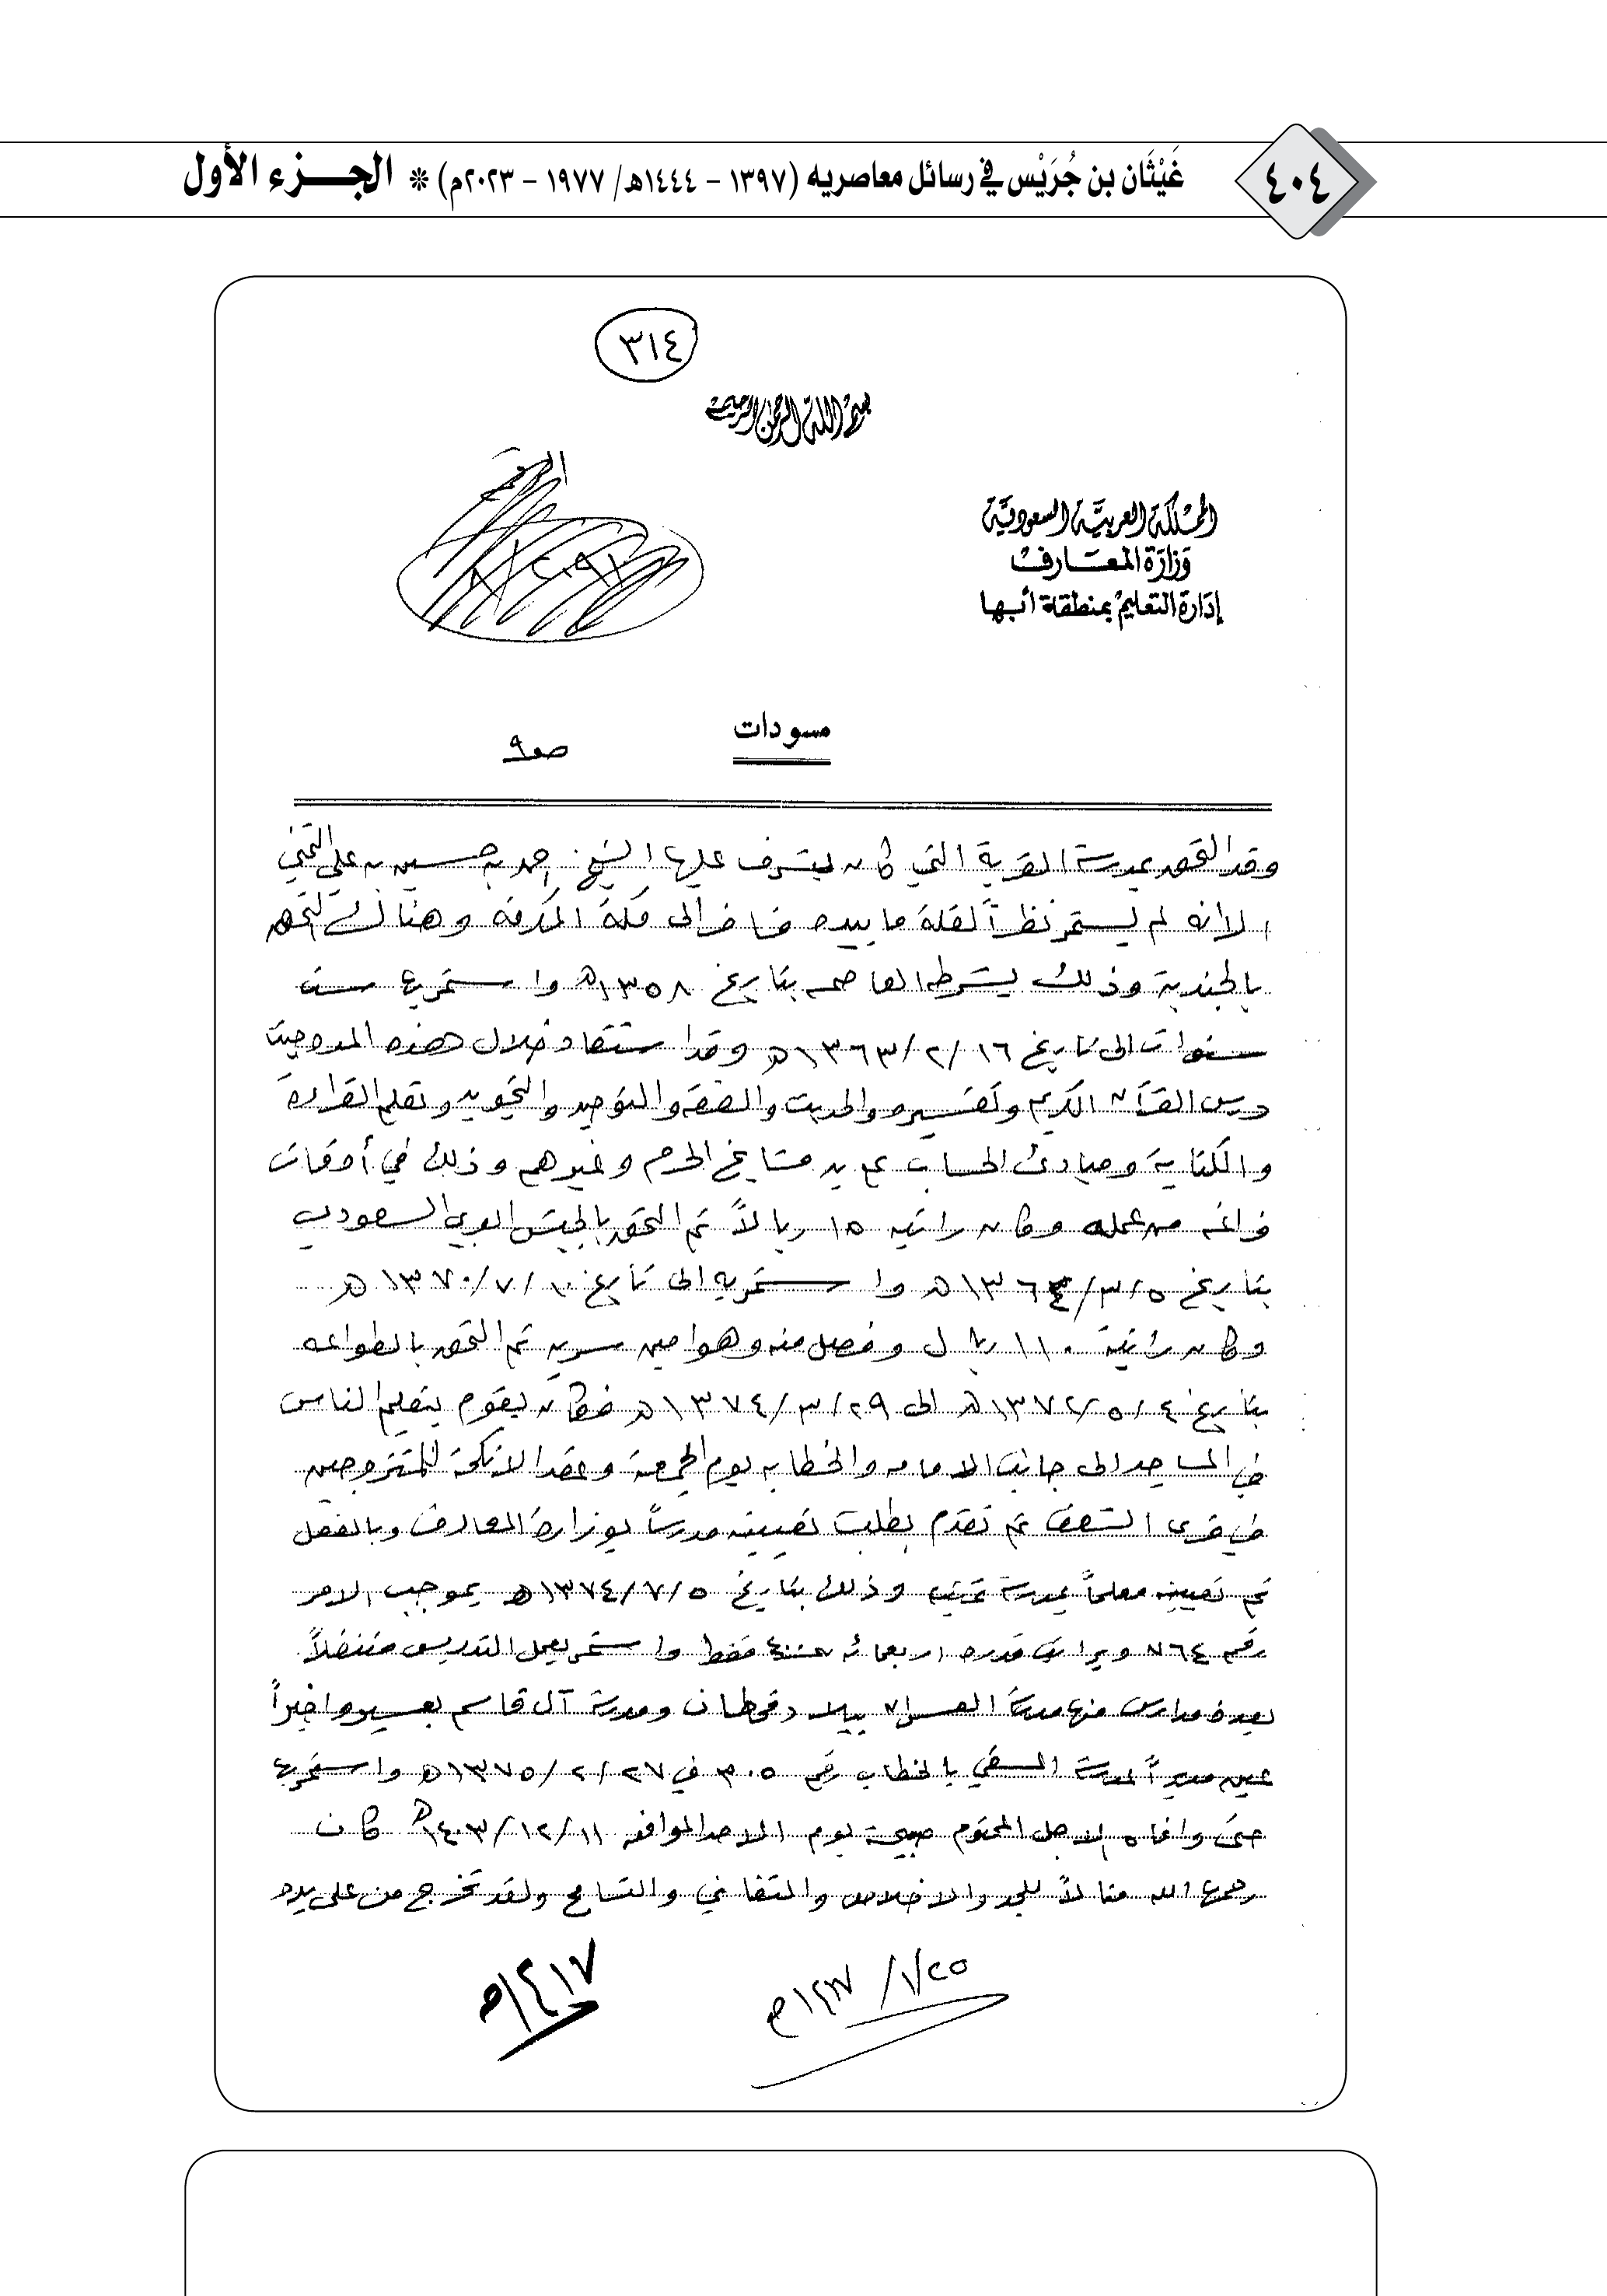 ٤٠٤
غَيْثَان بن جُرَيْس في رسائل معاصريه (١٣٩٧ - ١٤٤٤هـ/ ١٩٧٧ - ٢٠٢٣م) * الجزء الأول
٣١٤
بسم الله الرحمن الرحيم
المملكة العربية السعودية
وزارة المعارف
إدارة التعليم بمنطقة أبها
مسودات
صـ٩
وقد التحق بمدرسة القرية التي كان يشرف عليها الشيخ احمد بن حسين بن علي
الا انه لم يستمر نظراً لقلة ما بيده فسافر الى مكة المكرمة وهناك التحق
بالجندية وذلك بشرطة العاصمه بتاريخ ١٣٥٨هـ واستمر بها ست
سنوات الى تاريخ ١٣٦٣/٢/١٦هـ وقد استفاد خلال هذه المده حيث
درس القرآن الكريم وتفسيره والحديث والفقه والتوحيد والتجويد وتعلم القراءة
والكتابة ومبادئ الحساب على يد مشايخ الحرم وغيرهم وذلك في أوقات
فراغه من عمله وكان راتبه ١٥ ريالاً ثم التحق بالجيش العربي السعودي
بتاريخ ١٣٦٤/٣/٥هـ واستمر به الى تاريخ ١٣٧٠/٧/١٠هـ
وكان راتبه ١١٠ ريال وفصل منه وهو امين سريه ثم التحق بالطواعه
بتاريخ ١٣٧٢/٥/٤هـ الى ١٣٧٤/٣/٢٩هـ فكان يقوم بتعليم الناس
في المساجد الى جانب الامامه والخطابه يوم الجمعة وعقد الانكحة للمتزوجين
في قرى الشعف ثم تقدم بطلب تعيينه مدرساً بوزارة المعارف وبالفعل
تم تعيينه معلماً بمدرسة تمنيه وذلك بتاريخ ١٣٧٤/٧/٥هـ بموجب الامر
رقم ٧٦٤ وبراتب قدره اربعمائه فقط واستمر بعمل التدريس متنقلاً
بعدة مدارس منها مدرسة ببلاد قحطان ومدرسة آل قاسم بعسير واخيراً
عين مديراً لمدرسة السقي بالخطاب رقم ٣٠٥ في ١٣٧٥/٢/٢٧هـ واستمر بها
حتى وافاه الاجل المحتوم صبيحة يوم الاحد الموافق ١٤٠٣/١٢/١١هـ كان
رحمه الله مثالاً للجد والاخلاص والتفاني والتسامح ولقد تخرج من على يده
١/٢٥/١٤١٧هـ
١٤١٧هـ